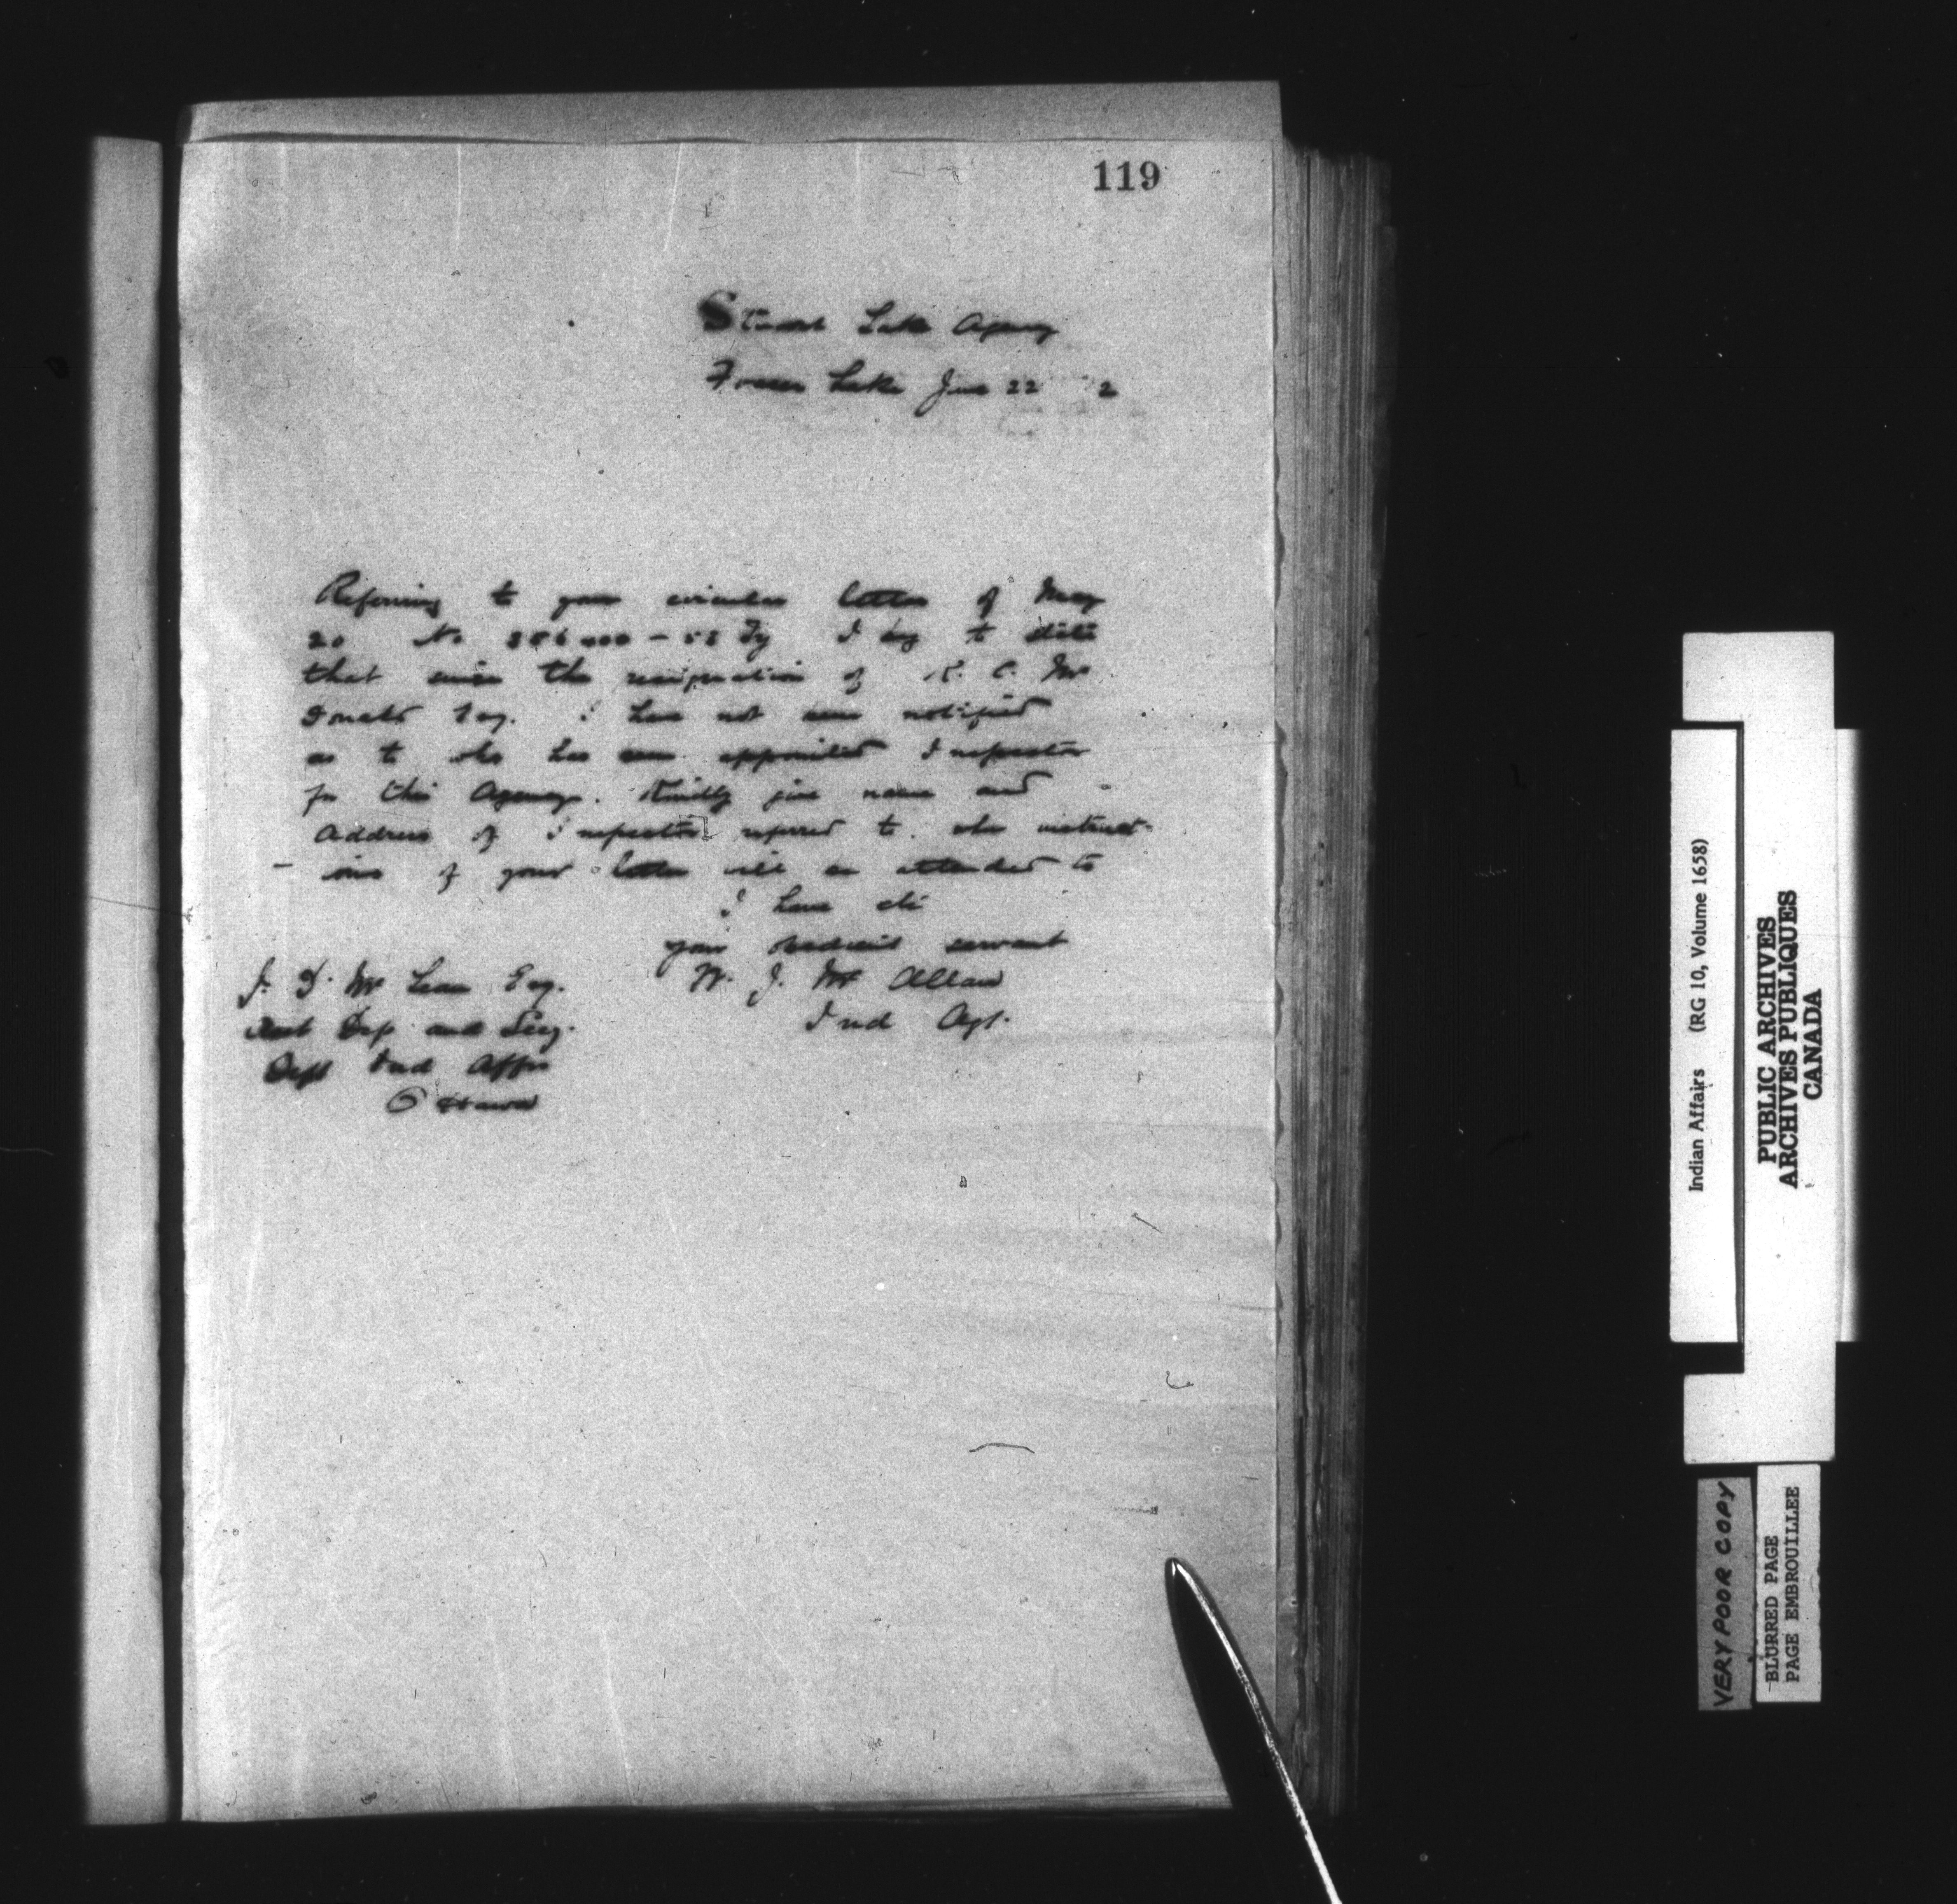 119
Stuart Lake Agency
Fraser Lake June 22 2
Referring to your circular letter of May
20 No I beg to state
that since the resignation of K. C. Mc
Donald Esq. I have not been notified
as to who has been appointed Inspector
for this Agency. Kindly give name and
Address of Inspector referred to. The instruct-
- ions of your letter will be attended to
I have etc
your obedient servant
J. D. Mc Lean Esq. W. J. Mc Allan
Asst Dep and Secy. Ind Agt.
Dept Ind Affrs
Ottawa
Indian Affairs (RG 10, Volume 1658)
PUBLIC ARCHIVES
ARCHIVES PUBLIQUES
CANADA
VERY POOR COPY
BLURRED PAGE
PAGE EMBROUILLEE